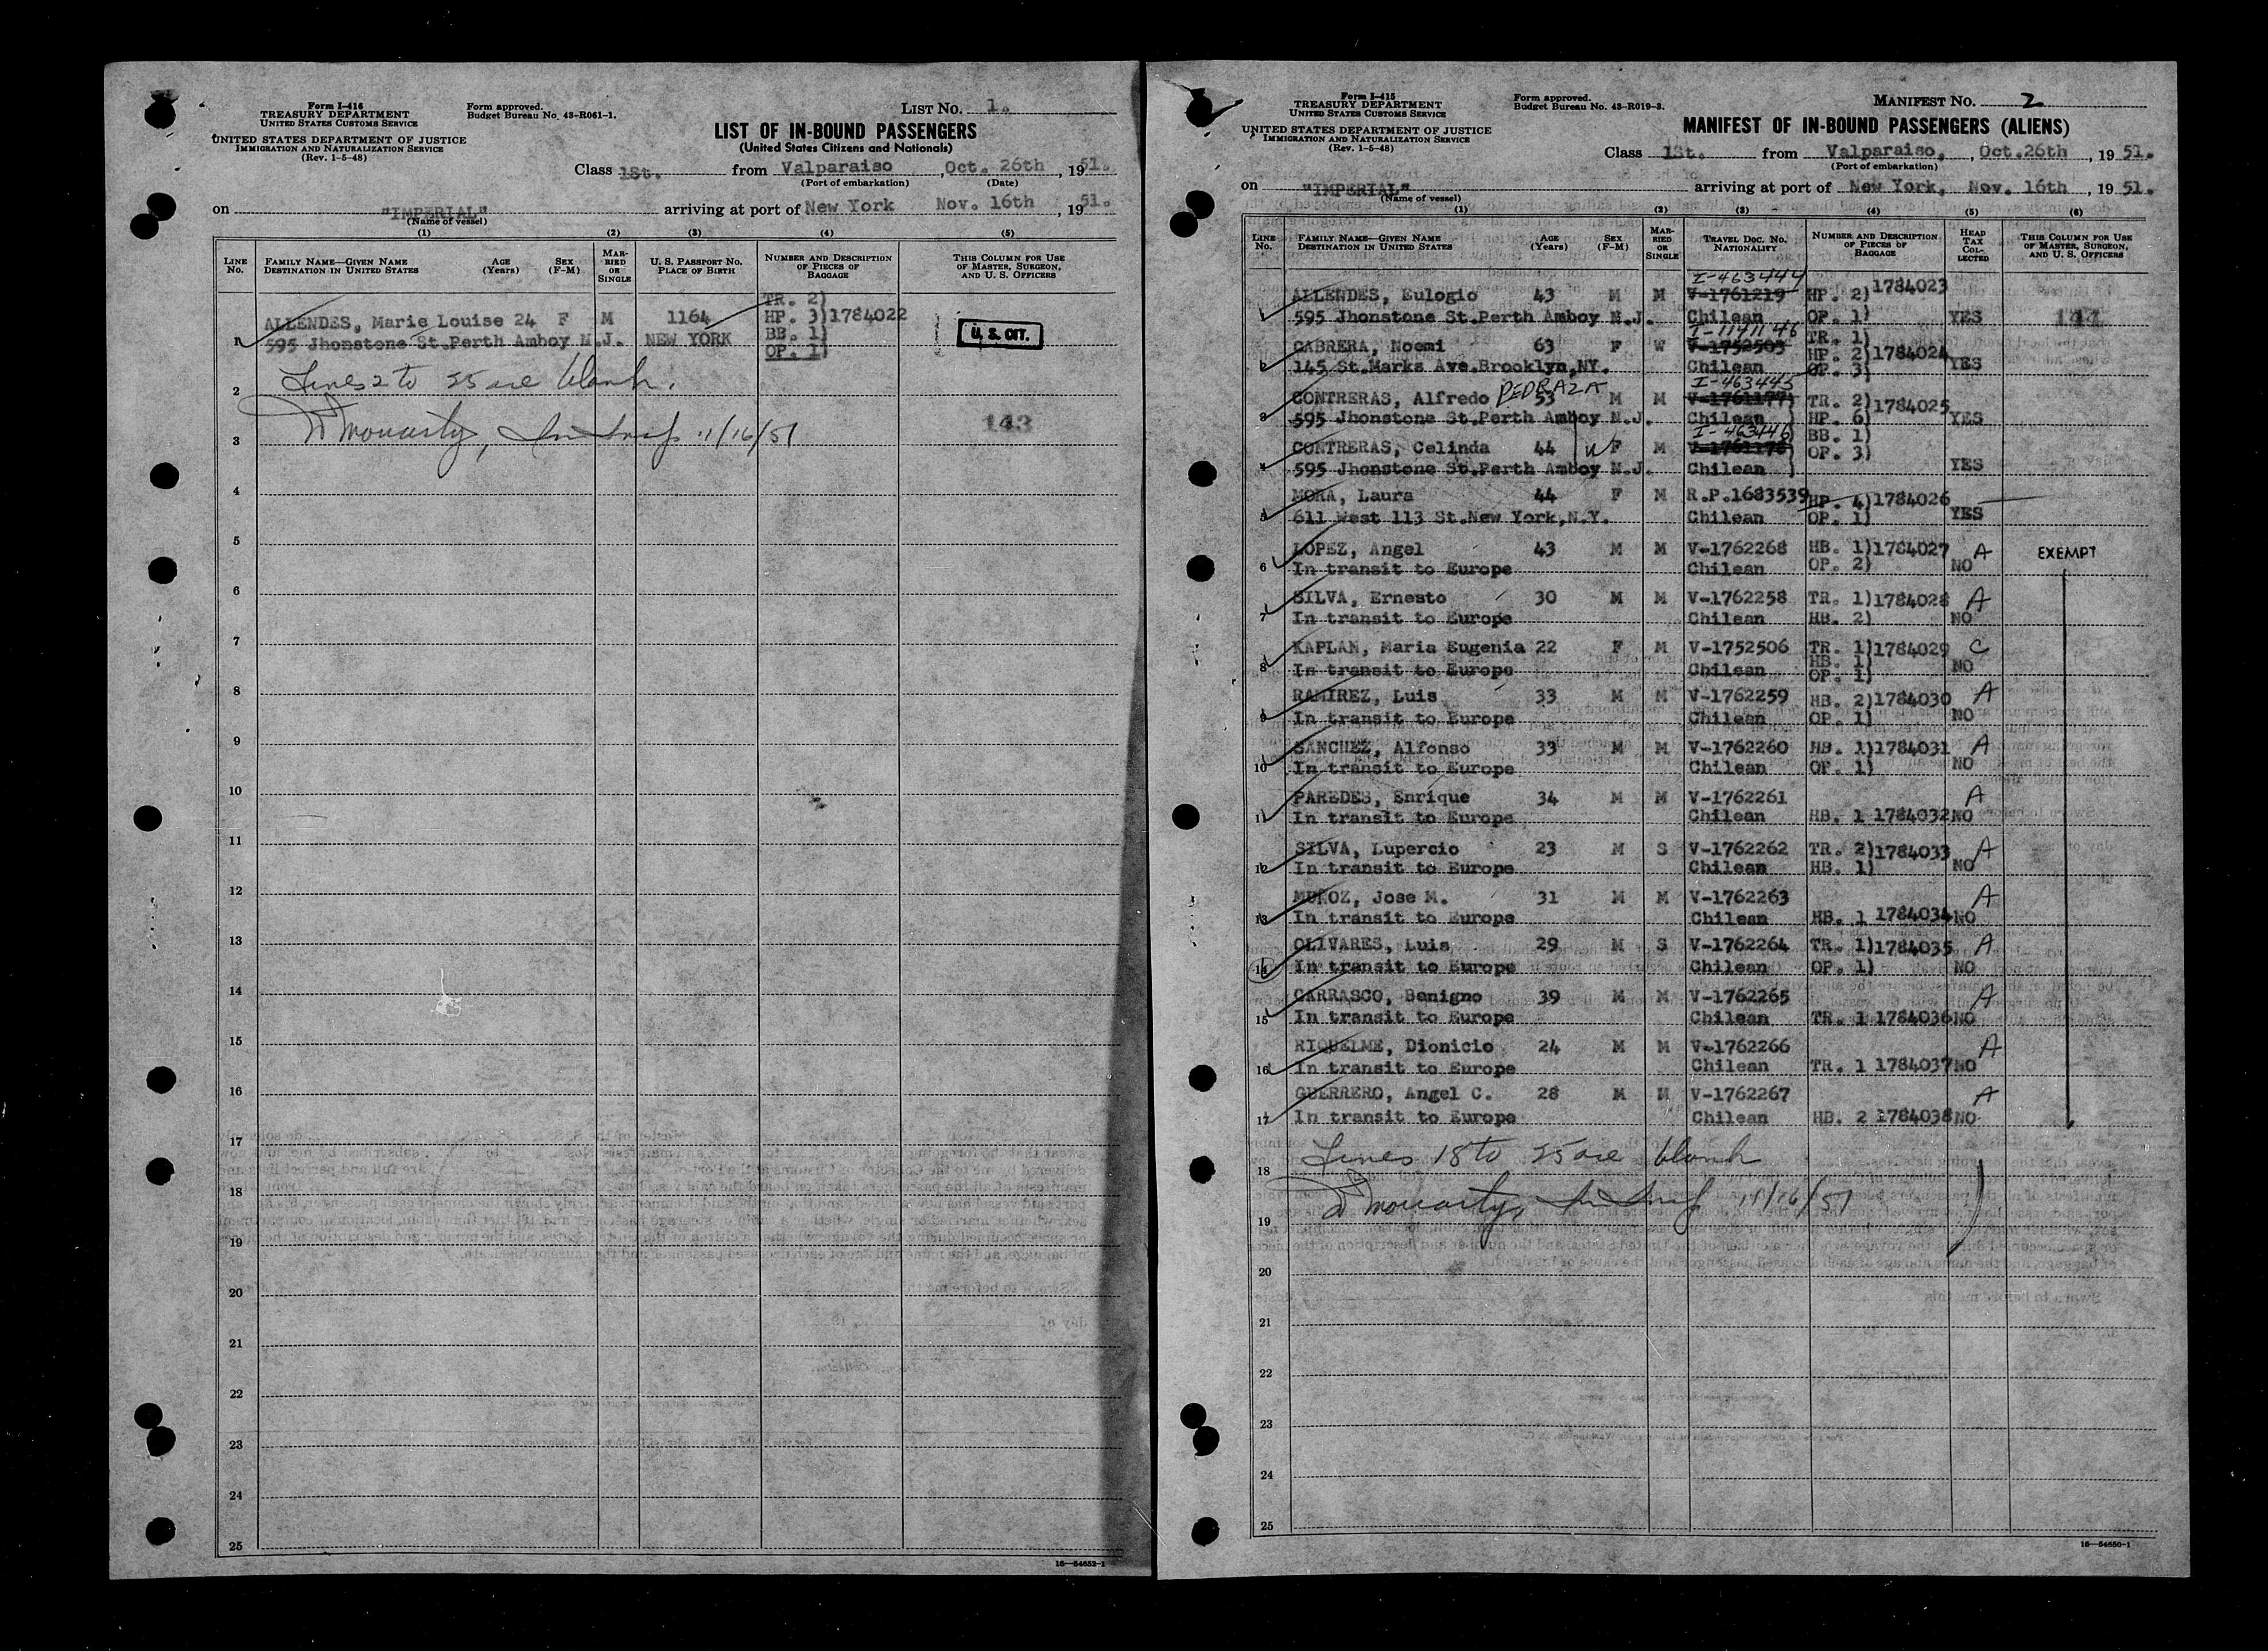 Form I-416
TREASURY DEPARTMENT
UNITED STATES CUSTOMS SERVICE
UNITED STATES DEPARTMENT OF JUSTICE
IMMIGRATION AND NATURALIZATION SERVICE
(Rev. 1-5-48)
Form approved.
Budget Bureau No. 43-R061-1.
LIST NO. 1.
LIST OF IN-BOUND PASSENGERS
(United States Citizens and Nationals)
Class 1St. from Valparaiso, Oct. 26th, 1951.
(Port of embarkation) (Date)
on "IMPERIAL" arriving at port of New York Nov. 16th, 1951.
(Name of vessel)
(1) (2) (3) (4) (5)
LINE NO. FAMILY NAME—GIVEN NAME DESTINATION IN UNITED STATES AGE (Years) SEX (F-M) MARRIED OR SINGLE U. S. PASSPORT NO. PLACE OF BIRTH NUMBER AND DESCRIPTION OF PIECES OF BAGGAGE THIS COLUMN FOR USE OF MASTER, SURGEON, AND U. S. OFFICERS
TR. 2)
ALLENDES, Marie Louise 24 F M 1164 HP. 3)1784022
1 595 Jhonstone St.Perth Amboy N.J. NEW YORK BB. 1) U. S. CIT.
OP. 1)
Lines 2 to 25 are blank.
2
3 Moriarty, Im Insp 11/16/51 143
4
5
6
7
8
9
10
11
12
13
14
15
16
17
18
19
20
21
22
23
24
25
16—54652-1
Form I-415
TREASURY DEPARTMENT
UNITED STATES CUSTOMS SERVICE
UNITED STATES DEPARTMENT OF JUSTICE
IMMIGRATION AND NATURALIZATION SERVICE
(Rev. 1-5-48)
Form approved.
Budget Bureau No. 43-R019-3.
MANIFEST NO. 2
MANIFEST OF IN-BOUND PASSENGERS (ALIENS)
Class 1St. from Valparaiso, Oct.26th, 1951.
(Port of embarkation)
on "IMPERIAL" arriving at port of New York, Nov. 16th, 1951.
(Name of vessel)
(1) (2) (3) (4) (5) (6)
LINE NO. FAMILY NAME—GIVEN NAME DESTINATION IN UNITED STATES AGE (Years) SEX (F-M) MARRIED OR SINGLE TRAVEL DOC. NO. NATIONALITY NUMBER AND DESCRIPTION OF PIECES OF BAGGAGE HEAD TAX COLLECTED THIS COLUMN FOR USE OF MASTER, SURGEON, AND U. S. OFFICERS
I-463444
ALLENDES, Eulogio 43 M M V-1761219 HP. 2)1784023
1 595 Jhonstone St.Perth Amboy N.J. Chilean OP. 1) YES 144
I-1141146 TR. 1)
CABRERA, Noemi 63 F W V-1752503 HP. 2)1784024
2 145 St.Marks Ave.Brooklyn,NY. Chilean OP. 3) YES
I-463445
CONTRERAS, Alfredo PEDRAZA 53 M M V-1761177) TR. 2)1784025
3 595 Jhonstone St.Perth Amboy N.J. Chilean ) HP. 6) YES
I-463446) BB. 1)
CONTRERAS, Celinda 44 W F M V-1761178) OP. 3)
4 595 Jhonstone St.Perth Amboy N.J. Chilean ) YES
MORA, Laura 44 F M R.P.1683539 HP. 4)1784026
5 611 West 113 St.New York,N.Y. Chilean OP. 1) YES
LOPEZ, Angel 43 M M V-1762268 HB. 1)1784027 A EXEMPT
6 In transit to Europe Chilean OP. 2) NO
SILVA, Ernesto 30 M M V-1762258 TR. 1)1784028 A
7 In transit to Europe Chilean HB. 2) NO
KAPLAN, Maria Eugenia 22 F M V-1752506 TR. 1)1784029 C
8 In transit to Europe Chilean HB. 1) NO
OP. 1)
RAMIREZ, Luis 33 M M V-1762259 HB. 2)1784030 A
9 In transit to Europe Chilean OP. 1) NO
SANCHEZ, Alfonso 33 M M V-1762260 HB. 1)1784031 A
10 In transit to Europe Chilean OP. 1) NO
PAREDES, Enrique 34 M M V-1762261 A
11 In transit to Europe Chilean HB. 1 1784032 NO
SILVA, Lupercio 23 M S V-1762262 TR. 2)1784033 A
12 In transit to Europe Chilean HB. 1) NO
MUÑOZ, Jose M. 31 M M V-1762263 A
13 In transit to Europe Chilean HB. 1 1784034 NO
OLIVARES, Luis 29 M S V-1762264 TR. 1)1784035 A
14 In transit to Europe Chilean OP. 1) NO
CARRASCO, Benigno 39 M M V-1762265 A
15 In transit to Europe Chilean TR. 1 1784036 NO
RIQUELME, Dionicio 24 M M V-1762266 A
16 In transit to Europe Chilean TR. 1 1784037 NO
GUERRERO, Angel C. 28 M M V-1762267 A
17 In transit to Europe Chilean HB. 2 1784038 NO
Lines 18 to 25 are blank
18
19 Moriarty, Im Insp 11/16/51
20
21
22
23
24
25
16—54650-1